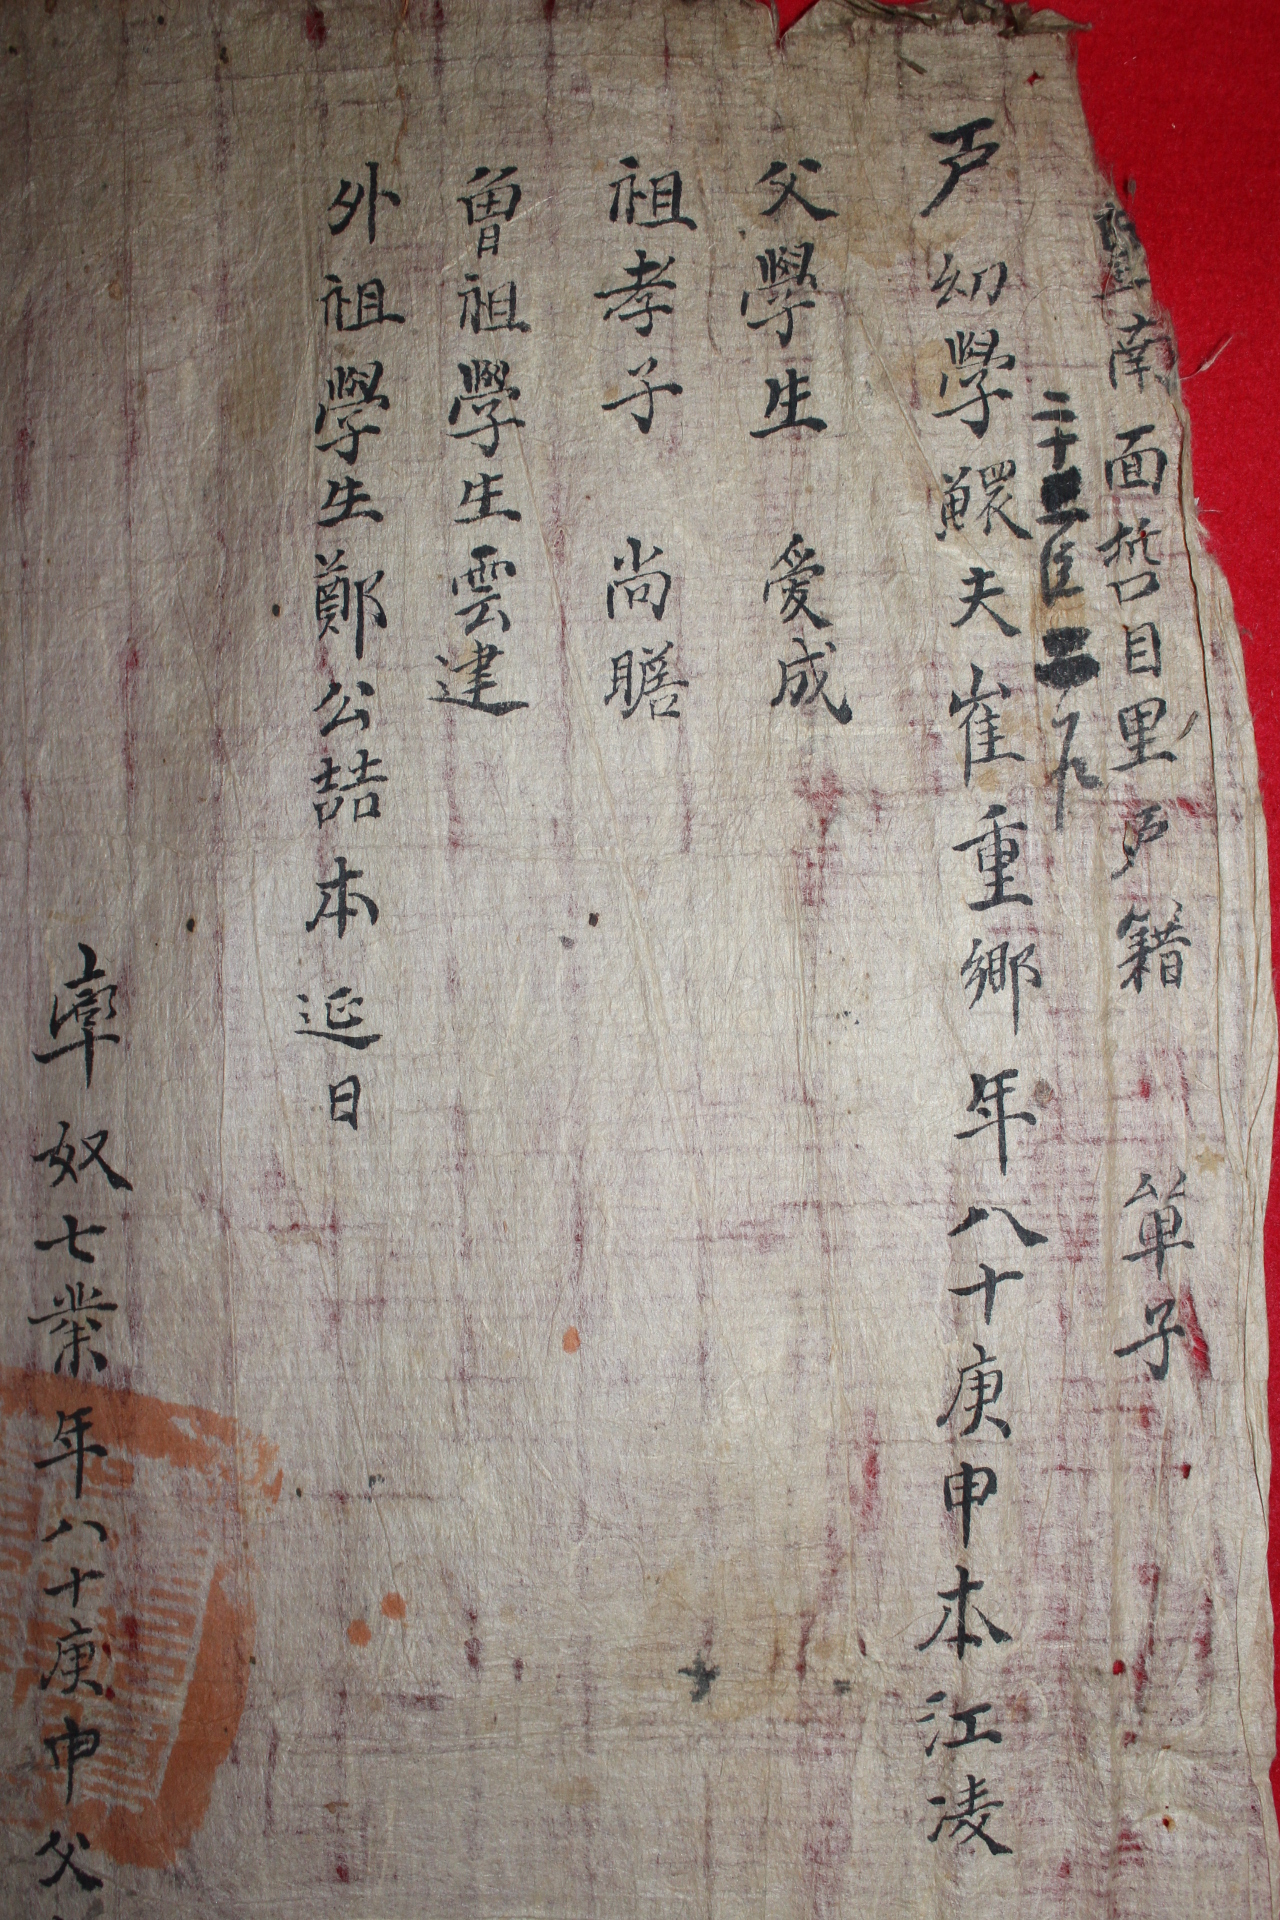 南面哲目里戶籍 單子
二十
戶幼學鰥夫崔重鄉年八十庚申本江凌
父學生 愛成
祖孝子 尚瞻
曾祖學生雲建
外祖學生鄭公喆本延日
率奴七業年八十庚申父